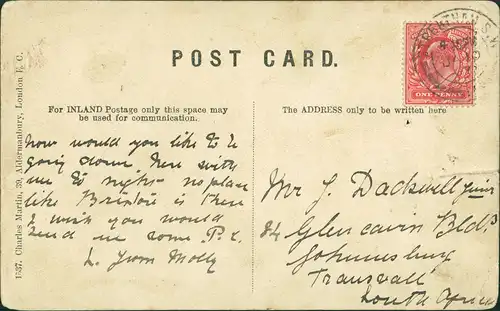 POST CARD.
For INLAND Postage only this space may
be used for communication.
The ADDRESS only to be written here
ONE PENNY
how would you like to be
going down here with
me to night no place
like Brixton is there
I wish you would
send me some P.C.
L. from Molly
Mr J. Dackwell Junr
84 Glencairn Bldgs
Johannesburg
Transvaal
South Africa
1537. Charles Martin, 39, Aldermanbury, London E.C.